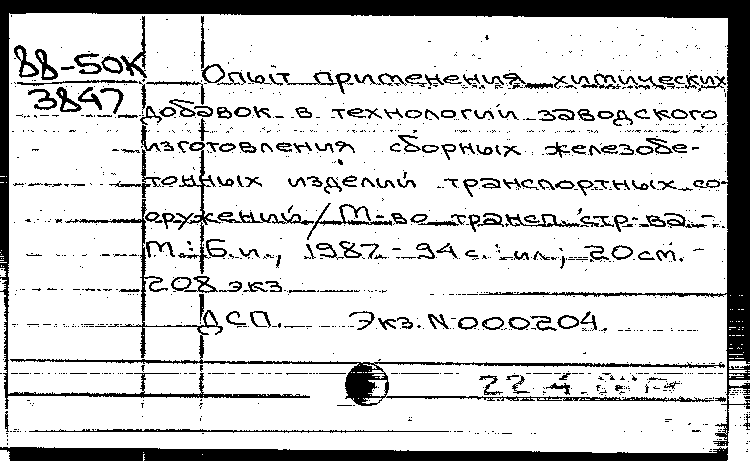 88-50К
3847
Опыт применения химических
добавок в технологии заводского
изготовления сборных железобе-
тонных изделий транспортных со-
оружений / М-во трансп. стр-ва. -
М.: Б.и., 1987. - 94 с.: ил.; 20 см. -
208 экз.
ДСП. Экз. N000204.
22 4